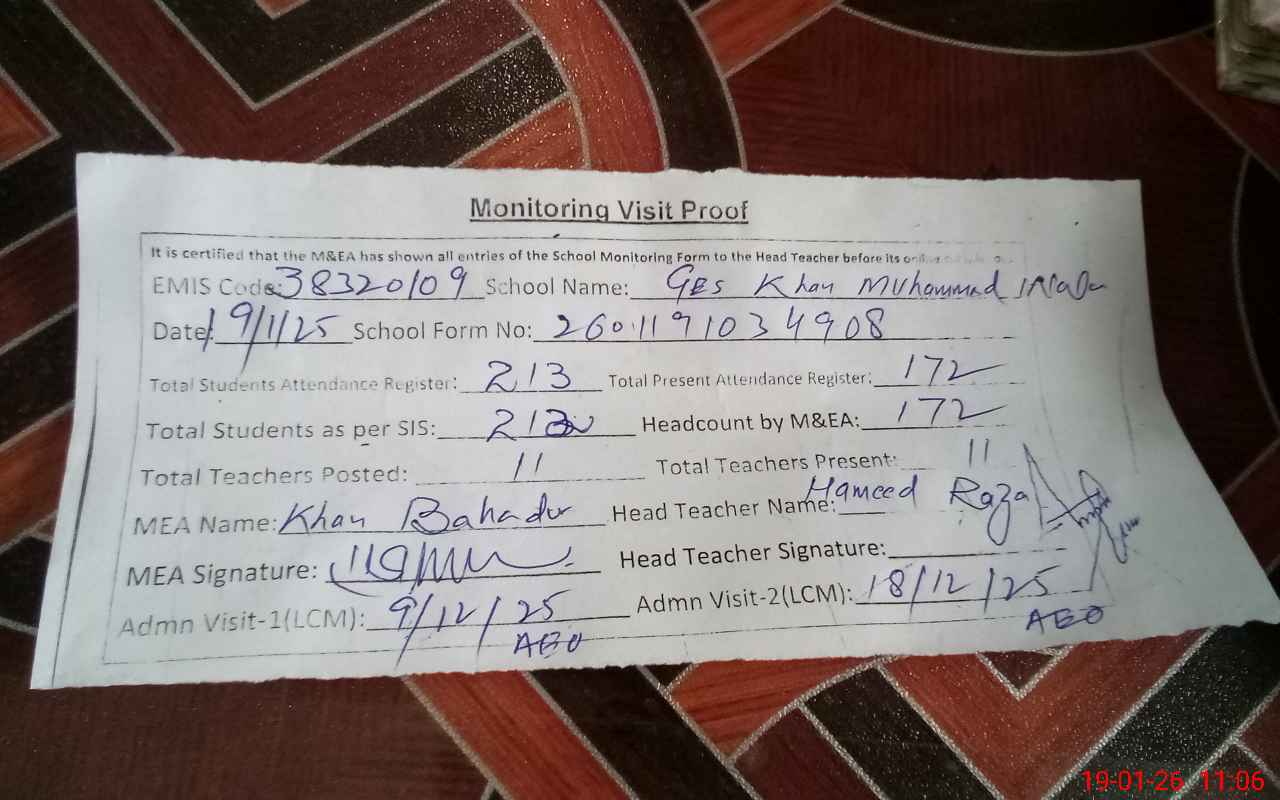 Monitoring Visit Proof
It is certified that the M&EA has shown all entries of the School Monitoring Form to the Head Teacher before its
EMIS Code: 38320109 School Name: GES Khan Muhammad
Date: 19/1/25 School Form No: 2601191034908
Total Students Attendance Register: 213 Total Present Attendance Register: 172
Total Students as per SIS: Headcount by M&EA: 172
Total Teachers Posted: 11 Total Teachers Present: 11
MEA Name: Khan Bahadur Head Teacher Name: Hameed Raza
MEA Signature: Head Teacher Signature:
Admn Visit-1(LCM): 9/12/25 Admn Visit-2(LCM): 18/12/25
AEO AEO
19-01-26 11:06